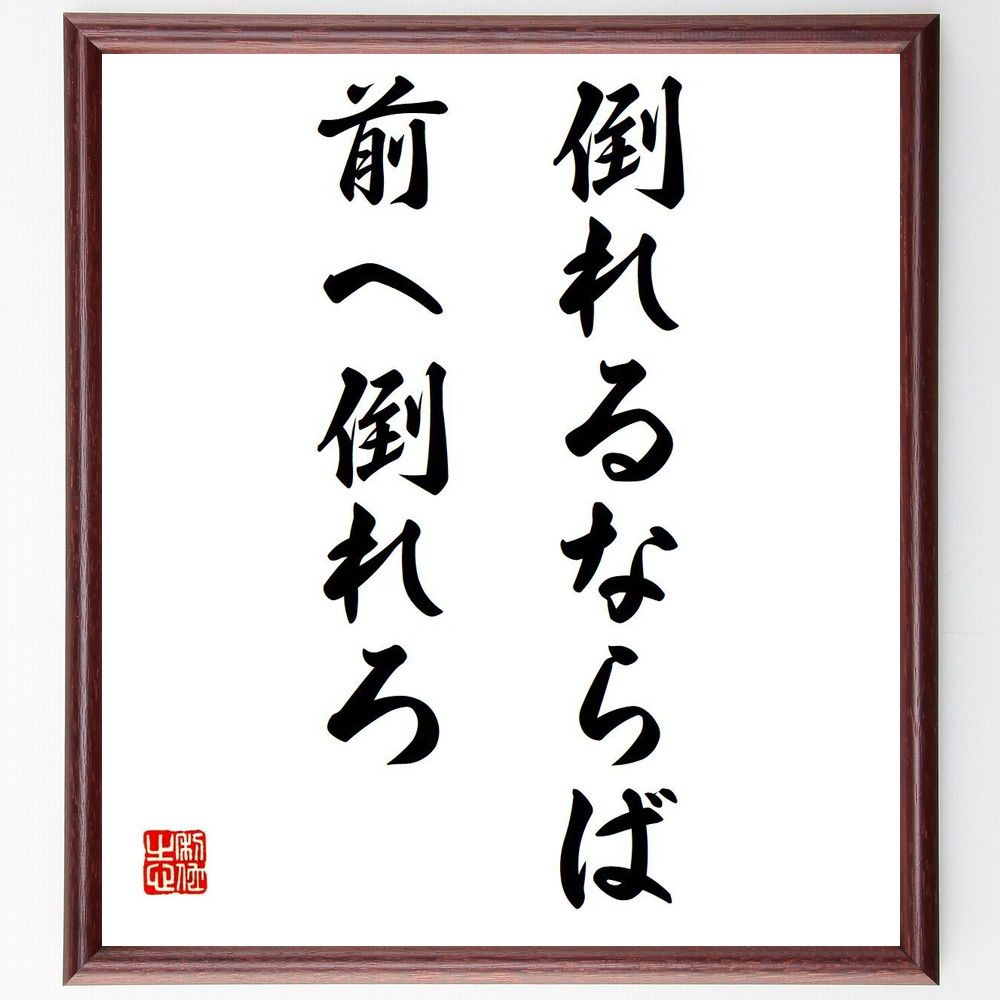 倒れるならば
前へ倒れろ